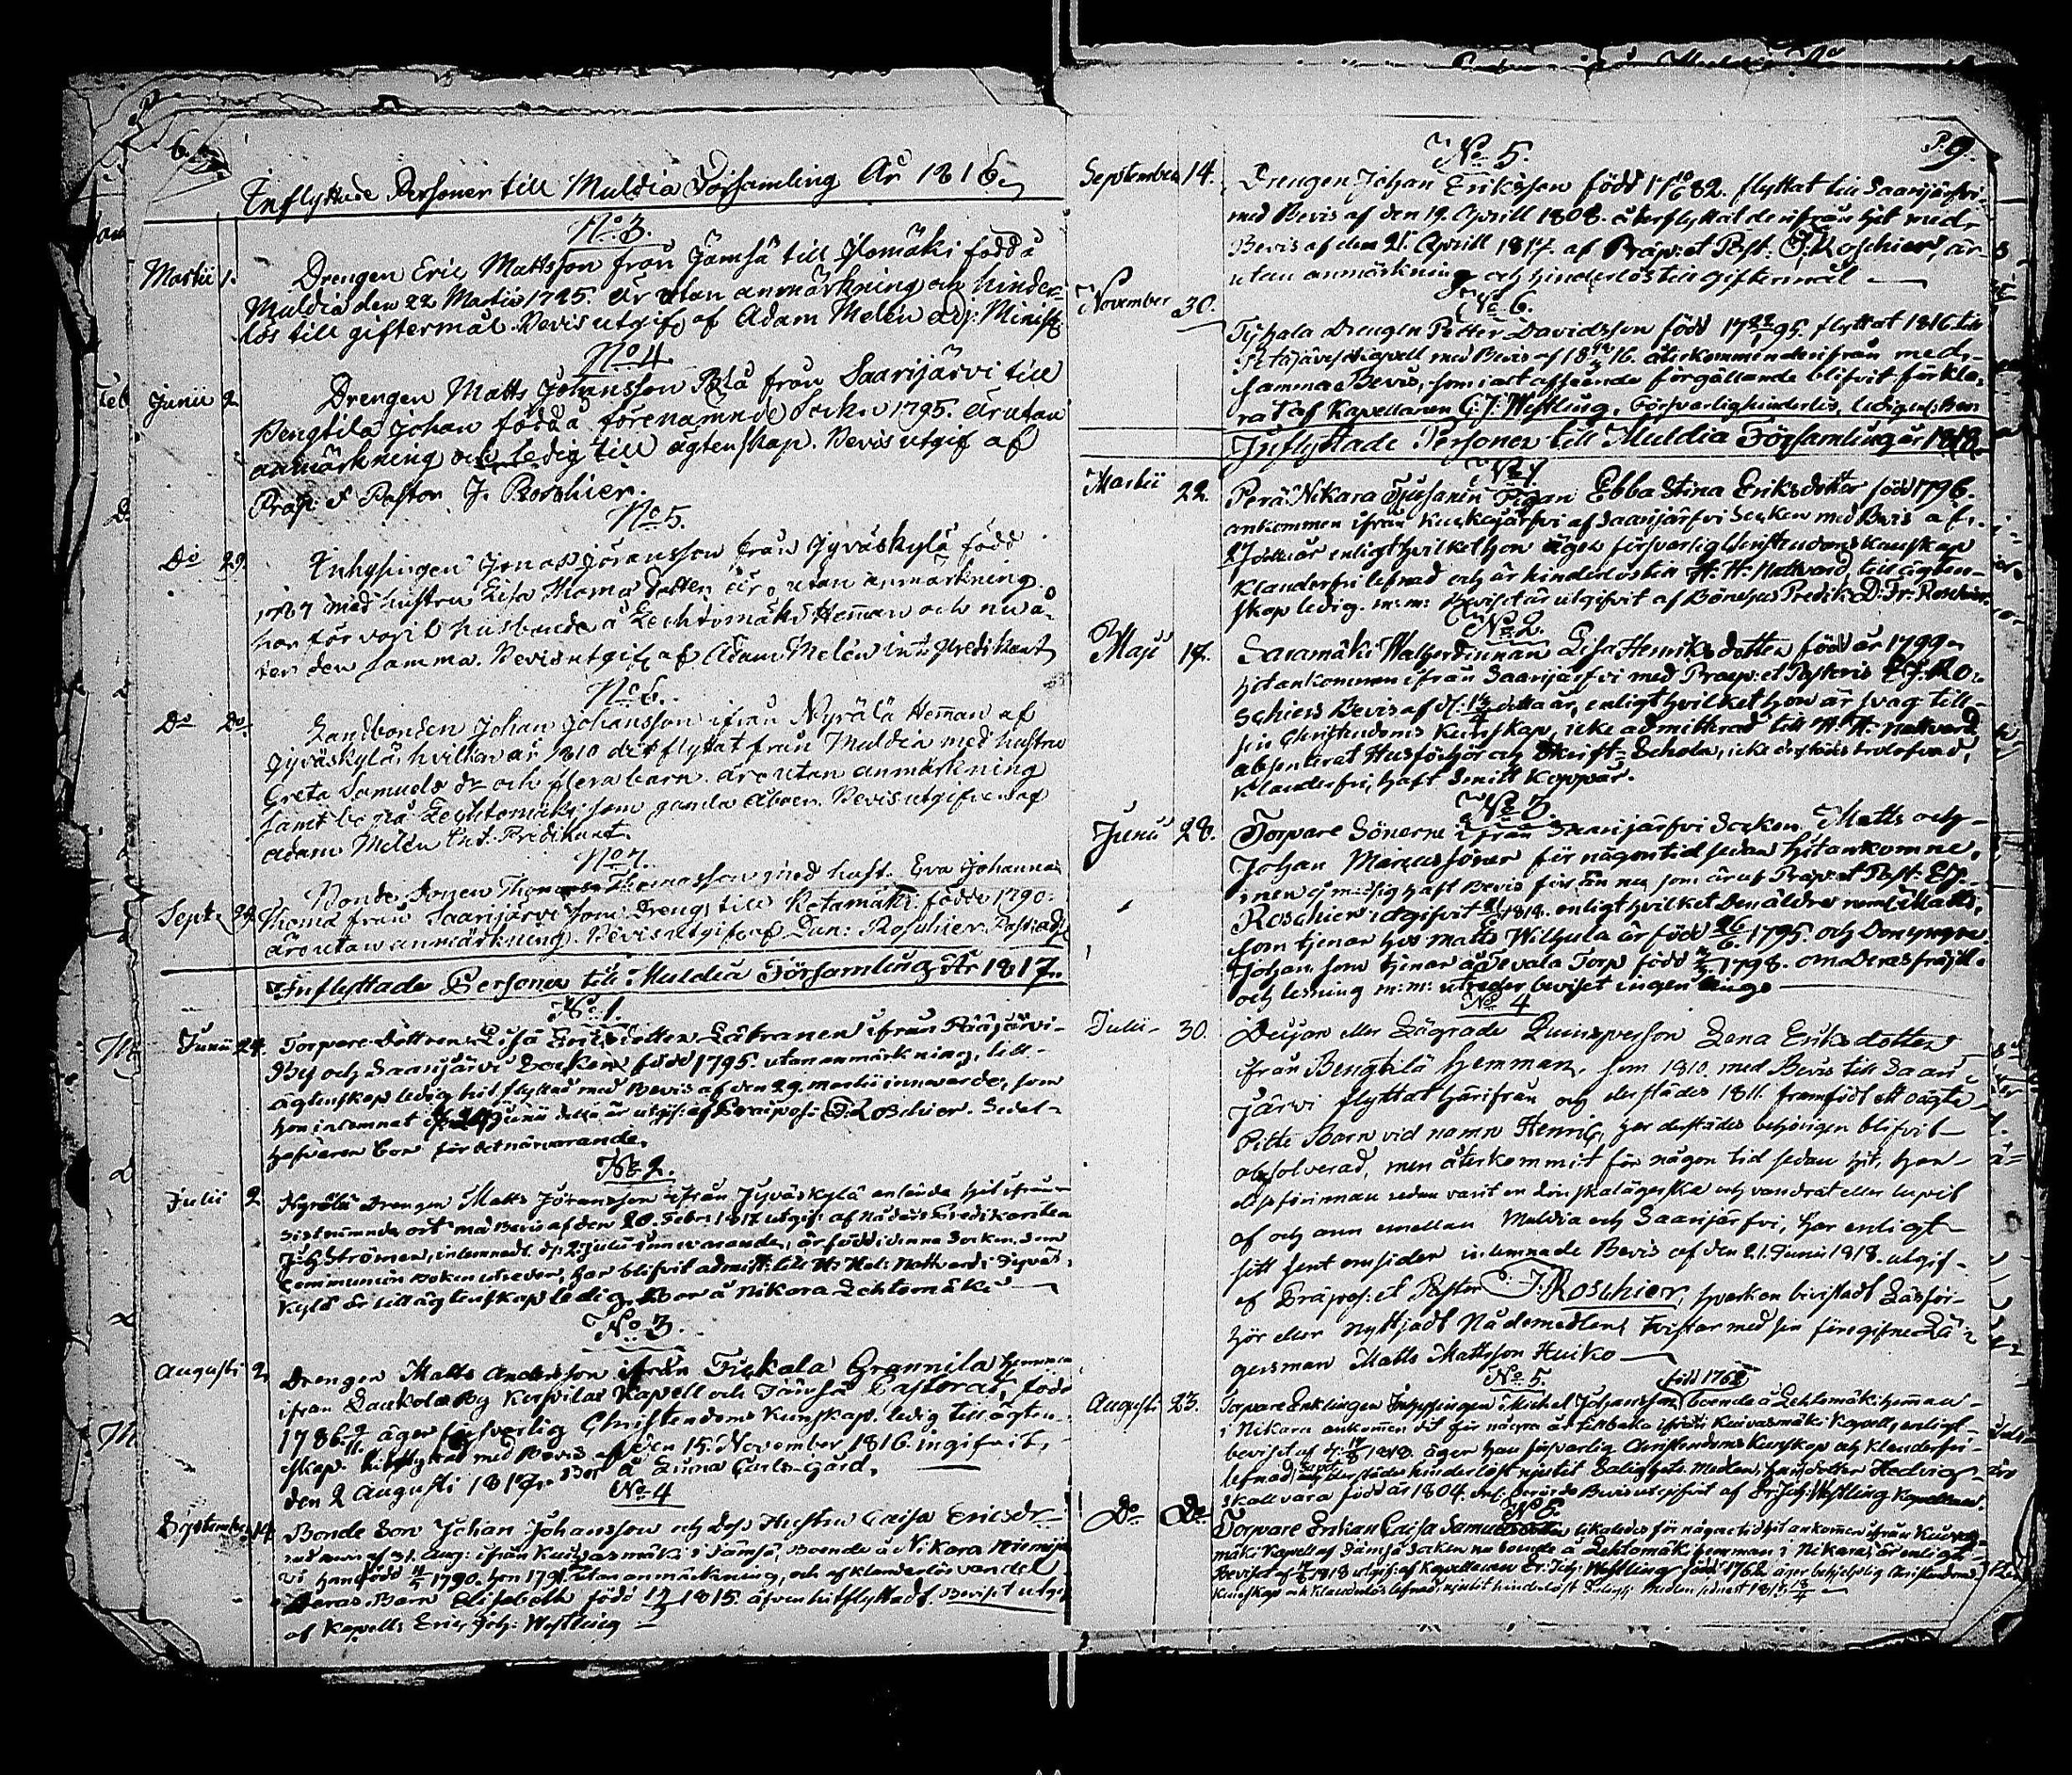 6.
Inflyttade Personer till Muldia Församling År 1816
No 3.
Martii 1. Drengen Eric Mattsson från Jämsä till Ylomäki född å
Muldia den 22 Martii 1725. är utan anmärkning och hinder-
lös till giftermål. Bevis utgif. af Adam Melén adj: Minist.
No 4.
Junii 2 Drengen Matts Johansson från Saarijärvi till
Pengtilä Johan född å förenämnde Sockn 1795. är utan
anmärkning och ledig till ägtenskap. Bevis utgif af
Prap. & Pastor J. Roschier.
No 5.
Do 29. Inhysingen Jonas Jöransson från Jyväskylä född
1787 med hustru Lisa Thomæ dotter äro utan anmärkning
har förvarit husbonde å Lechtomäki Heman och nu å-
ter den samma. Bevis utgif af Adam Melén int. Predikant
No 6.
Do Do. Landbonden Johan Johansson ifrån Nyrälä Heman af
Jyväskylä, hvilken år 1810 dit flyttat från Muldia med hustru
Greta Samuels dr och flera barn. äro utan anmärkning
samt bo på Lechtomäki som gamla åboer. Bevis utgifven af
Adam Melén Int. Predikant.
No 7.
Bonde Sonen Thomas Thomasson med hust. Eva Johanna
Septr 29. Thoma från Saarijärvi som Dreng till Ketamäki födde 1790.
äro utan anmärkning. Bevis utgif. af Dan: Roschier Past: adj
Inflyttade Personer till Muldia Församling År 1817.
No 1.
Junii 24. Torpare Dottren Lisa Ericsdotter Läkranen ifrån Pääjärvi
By och Saarijärvi Socken född 1795. utan anmärkning, till
ägtenskap ledig hit flyttad med Bevis af den 29. martii innevarde, som
hon inlemnat Junii detta år utgif: af Præpos: J. Roschier. Sedel-
No 2.
Julii 2 Nyrälä Drengen Matts Jöransson ifrån Jyväskylä anlände hit ifrån
sistnämnde ort med Bevis af den 20. Febr: 1817 utgif: af Nådårs Predikanten
Joh. Strömer, inlemnadt d. 2 Julii innevarande, är född i denna Socken som
Communion Boken utreder, har blifvit admitt: till H: Hel: Nattvard i Jyväs-
kylä är till ägtenskap ledig. Bor å Nikara Lehtomäki
No 3.
Augusti 2. Drengen Matts Andersson ifrån Tickala Grannila hemman
ifrån Laukola By Korpilax Kapell och Jämsä Pastorat, född
1786 äger försvarlig Christendoms Kunskap. ledig till ägten-
skap. hitflyttat med Bevis af den 15. November 1816. ingifvit
den 2 Augusti 1817. Bor å Luma Carls-Gård.
No 4
September 14. Bonde Son Johan Johansson och dess Hustru Caisa Ericsdr
med Bevis af 31. Aug: ifrån Kuivasmäki i Jämsä, Boende å Nikara Niemijär
vi han född 1790. hon 1791 utan anmärkning, och af klanderlös vandel
Deras Barn Elisabeth född 1815. äfven hitflyttadt. Beviset utgif
af Kapell: Eric Joh: Westling
P. 9.
No 5.
September 14. Drengen Johan Eriksson född 82. flyttat till Saarijärfvi
med Bevis af den 19. Aprill 1808. återflyttat derifrån hit med
Bevis af den 21. Aprill 1817. af Præp: et Past: J. Roschier, är
utan anmärkning och hinderlös till giftermål
No 6.
November 30. Drengen Petter Davidsson född 95. flyttat 1816 till
Petäjäves Kapell med Bevis af 16. återkommin derifrån med
samma Bevis, som i alt afseende förgällande blifvit förkla-
rat af Kapellanen E. J. Westling, försvarlig hinderlös, ledig
Inflyttade Personer till Muldia Församling år 1818.
No 1.
Martii 22. Perä Nikara Pigan Ebba Stina Eriksdotter född 1796.
ankommen ifrån Kuckojärfvi af Saarijärfvi Socken med Bevis af
27 detta år enligt hvilket hon äger försvarlig Christendoms kunskap
Klanderfri lefnad och är hinderlös till H. H. Nattvard, till ägten-
skap ledig. m: m: Beviset är utgifvit af Bönehus Predik: D: Fr: Roschier.
No 2.
Maji 17. Saramäki Lisa Henriksdotter född år 1799
hitankommen ifrån Saarijärfvi med Præp: et Pastoris Ro-
schiers Bevis af d: detta år, enligt hvilket hon är svag till
sin Christendoms Kunskap, icke admitterad till H. H. Nattvard,
absenterat Husförhör och Skrift-Schola, icke trolofvad,
Klanderfri, haft Smitt Koppor.
No 3.
Junii 28. Torpare Sönerne ifrån Saarijärfvi Socken Matts och
Johan Marcussöner för någon tid sedan hitankomne,
men ej haft Bevis för än nu som är af Præp: et Past:
Roschier utgifvit 1818. enligt hvilket den äldre neml. Matts,
som tjenar hos Matts Wilhula är född 1795. och Den yngre
Johan, som tjenar å Devala Torp född 1798. om Deras frejd
och lesning m: m: utreder beviset ingen ting.
No 4
Julii 30. Dejan eller Lägrade Quinspersson Lena Eriksdotter
ifrån Bengtilä hemman, som 1810. med Bevis till Saari
Järvi flyttat härifrån och derstädes 1811. framfödt ett oägta
Pitte Barn vid namn Henric, har derstädes behörigen blifvit
absolverad, men återkommit för någon tid sedan hit, har
dess förinnan sedan varit en löniskalägerska och vandrat eller lupit
af och ann emellan Muldia och Saarijärfvi, har enligt
sitt sent omsider inlemnade Bevis af den 21. Junii 1818. utgif-
af Præpos: et Paster J: Roschier, hvarken bivistadt Läsför-
hör eller nyttjadt Nådemedlen, tvistar med sin föregifne Lä-
gersman Matts Mattsson Huiko
No 5.
född 1762
Augusti 23. Torpare Enklingen Inhysingen Michel Johansson, boende å Lehtomäki hemman
i Nikara ankommen hit för några år tillbaka ifrån Kuivasmäki Kapell, enligt
beviset af d: 1818. äger han försvarlig Christendoms Kunskap och klanderfri
lefnad, derstädes hinderlöst njutit Salighets medlen, hans dotter Hedvig
skall vara född år 1804. Beviset utgifvit af Er: Joh: Westling Kapellan.
No 6.
Do Do Torpare Enkan Caisa Samuelsdotter likaledes för någon tid hitankommen ifrån Kuivas-
mäki Kapell af Jämsä Socken nu boende å Lehtomäki hemman i Nikara, är enligt
Beviset af 1818 utgif: af Kapellanen Er: Joh: Westling född 1762. äger behjelplig Christendoms
Kunskap och klanderlös lefnad, njutit hinderlöst Salighets medlen sednast 1818.